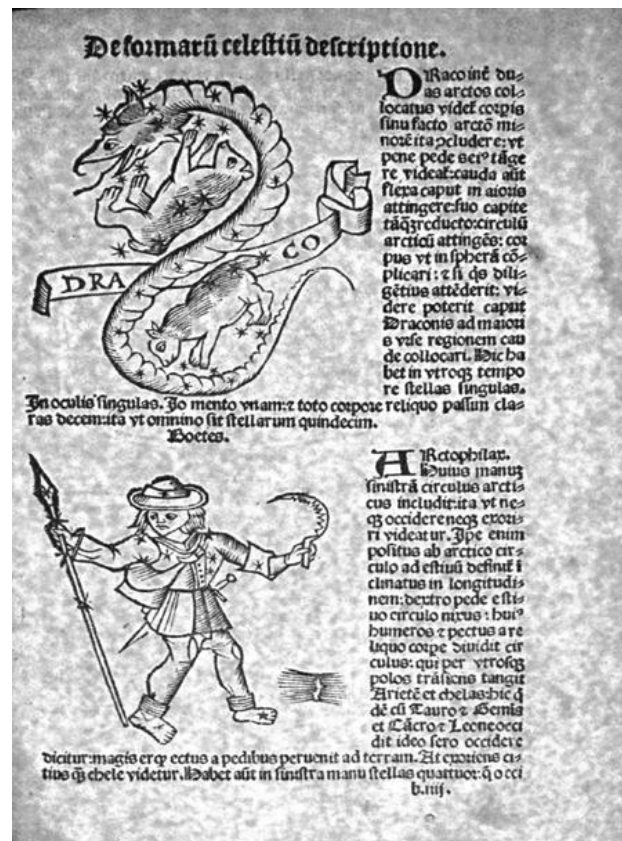 De formarū celestiū descriptione.
DRaco int̄ du⸗
as arctos col⸗
locatus videt̄ corpis
sinu facto arctō mi⸗
norē ita ↄcludere: vt
pene pede sei⁹ tāge
re videat̄: cauda aūt
flexa caput m aioris
attingere: suo capite
tāqꝫ reducto: circulū
arcticū attingēs: cor
pus vt in spherā cō⸗
plicari: ⁊ si qs dili⸗
gētius attēderit: vi⸗
dere poterit caput
Draconis ad maiori
s vrse regionem cau
de collocari. Hic ha
bet in vtroqꝫ tempo
re stellas singulas.
DRA CO
In oculis singulas. Io mento vnam: ⁊ toto corpore reliquo passun cla⸗
ras decem: ita vt omnino sit stellarum quindecun.
Boetes.
ARctophilax.
Huius manuꝫ
sinistrā circulus arcti⸗
cus includit: ita vt ne⸗
qꝫ occidere neqꝫ exori⸗
ri videatur. Ipe enim
positus ab arctico cir⸗
culo ad estiuū definit̄ ī
clinatus in longitudi⸗
nem: dextro pede esti⸗
uo circulo nixus: hui⁹
humeros ⁊ pectus a re
liquo corpe diuidit cir
culus: qui per vtrosqꝫ
polos trāsiens tangit
Arietē et chelas: hic q̄
dē cū Tauro ⁊ Gemis
et Cācro ⁊ Leone occi
dit ideo sero occidere
dicitur: magis erqꝫ ectus a pedibus peruenit ad terram. At exoriens ci⸗
tius q̄ꝫ chele videtur. Habet aūt in sinistra manu stellas quattuor: q̄ occi
b.iiij.